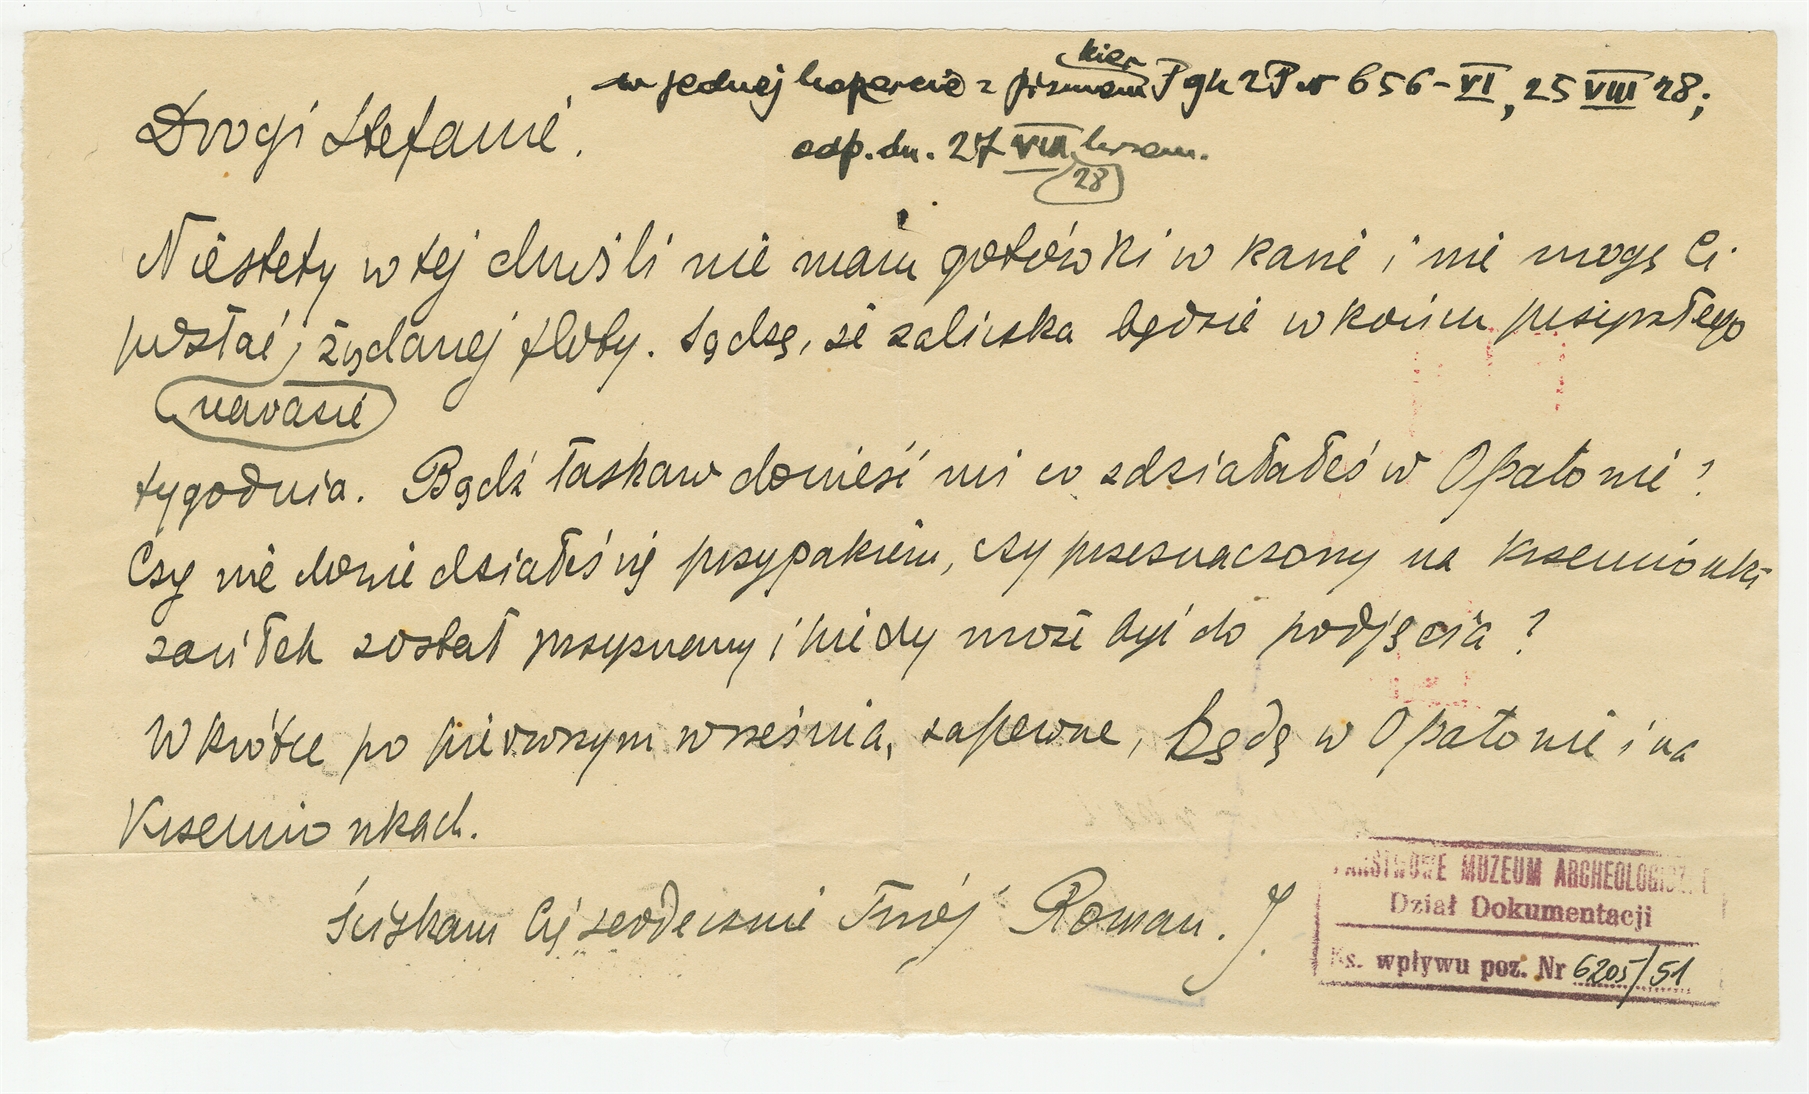 kier
w jednej kopercie z pismem P gk 2P w 656-VI, 25 VIII 28;
Drogi Stefanie.
odp. dn. 27 VIII krzem.
28
Niestety w tej chwili nie mam gotówki w kasie i nie mogę Ci
posłać żądanej floty. Sądzę, że zaliczka będzie w końcu przyszłego
narazie
tygodnia. Bądź łaskaw donieść mi co zdziałałeś w Opatowie?
Czy nie dowiedziałeś się przypakiem, czy przeznaczony na Krzemionki
zasiłek został przyznany i kiedy może być do podjęcia?
Wkrótce po pierwszym września, zapewne, będę w Opatowie i na
Krzemionkach.
Ściskam Cię serdecznie Twój Roman. J.
PAŃSTWOWE MUZEUM ARCHEOLOGICZNE
Dział Dokumentacji
Ks. wpływu poz. Nr 6205/51